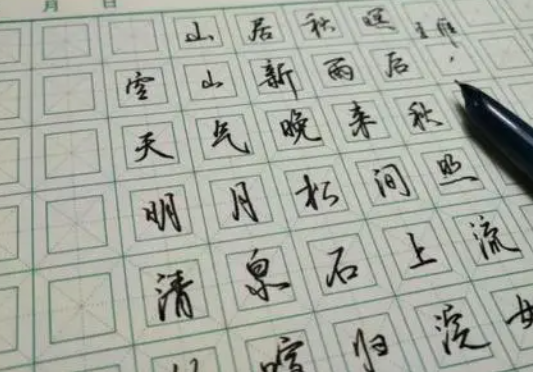 月 日
山居秋暝 王维
空山新雨后
天气晚来秋
明月松间照
清泉石上流
喧归浣女